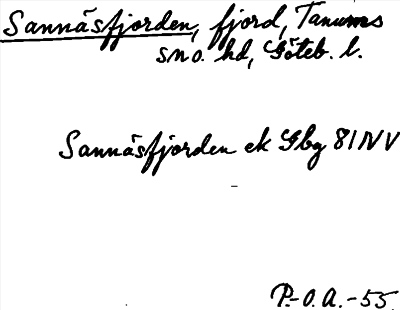 Sannäsfjorden, fjord, Tanums
sno. hd, Göteb. l.
Sannäsfjorden ek Gbg 81NV
P.-O.A.-55.